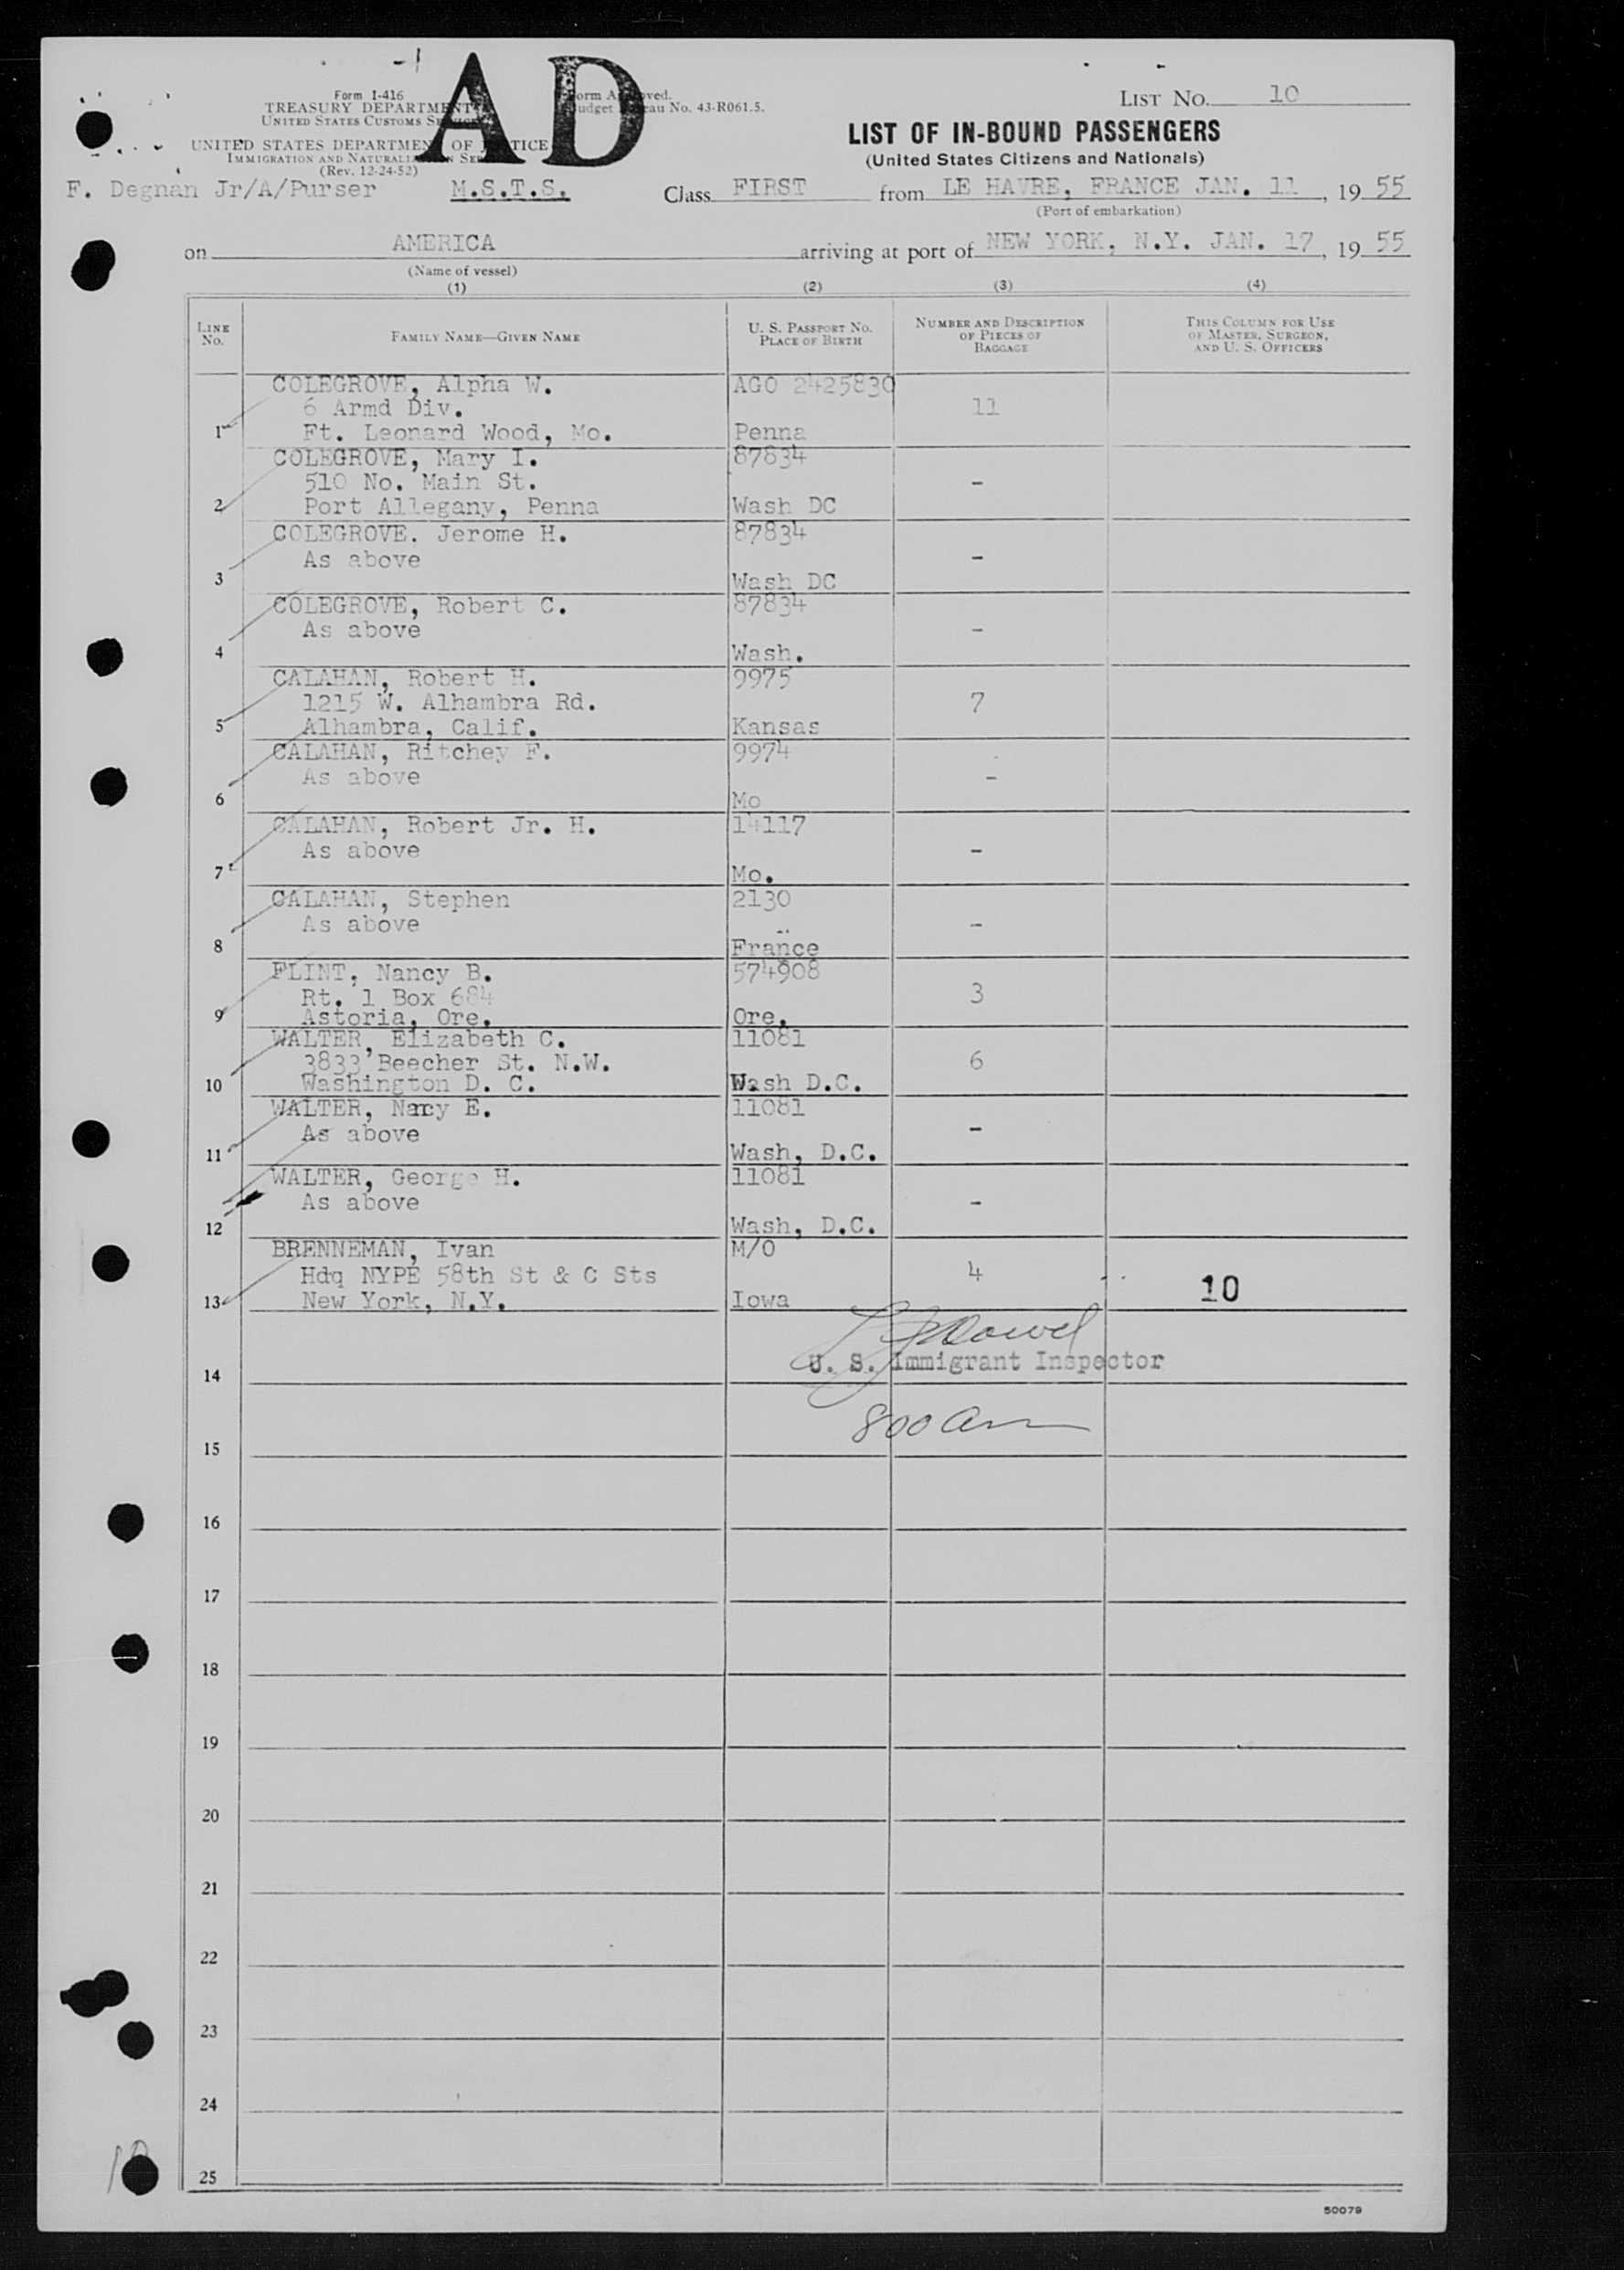 AD
Form I-416
TREASURY DEPARTMENT
UNITED STATES CUSTOMS
UNITED STATES DEPARTMENT OF JUSTICE
IMMIGRATION AND NATURALIZATION
(Rev. 12-24-52)
Form Approved.
Budget Bureau No. 43-R061.5.
LIST NO. 10
LIST OF IN-BOUND PASSENGERS
(United States Citizens and Nationals)
F. Degnan Jr/A/Purser M.S.T.S. Class FIRST from LE HAVRE, FRANCE JAN. 11, 19 55
(Port of embarkation)
on AMERICA arriving at port of NEW YORK, N.Y. JAN. 17, 19 55
(Name of vessel)
(1) (2) (3) (4)
LINE NO. FAMILY NAME—GIVEN NAME U. S. PASSPORT NO. PLACE OF BIRTH NUMBER AND DESCRIPTION OF PIECES OF BAGGAGE THIS COLUMN FOR USE OF MASTER, SURGEON, AND U. S. OFFICERS
COLEGROVE, Alpha W. AGO 2425830
6 Armd Div. 11
1 Ft. Leonard Wood, Mo. Penna
COLEGROVE, Mary I. 87834
510 No. Main St. -
2 Port Allegany, Penna Wash DC
COLEGROVE. Jerome H. 87834
As above -
3 Wash DC
COLEGROVE, Robert C. 87834
As above -
4 Wash.
CALAHAN, Robert H. 9975
1215 W. Alhambra Rd. 7
5 Alhambra, Calif. Kansas
CALAHAN, Ritchey F. 9974
As above -
6 Mo
CALAHAN, Robert Jr. H. 14117
As above -
7 Mo.
CALAHAN, Stephen 2130
As above -
8 France
FLINT, Nancy B. 574908
Rt. 1 Box 684 3
9 Astoria, Ore. Ore.
WALTER, Elizabeth C. 11081
3833 Beecher St. N.W. 6
10 Washington D. C. Wash D.C.
WALTER, E. 11081
As above -
11 Wash, D.C.
WALTER, George H. 11081
As above -
12 Wash, D.C.
BRENNEMAN, Ivan M/O
Hdq NYPE 58th St & C Sts 4
13 New York, N.Y. Iowa 10
14 U. S. Immigrant Inspector
800 am
15
16
17
18
19
20
21
22
23
24
25
10
50079